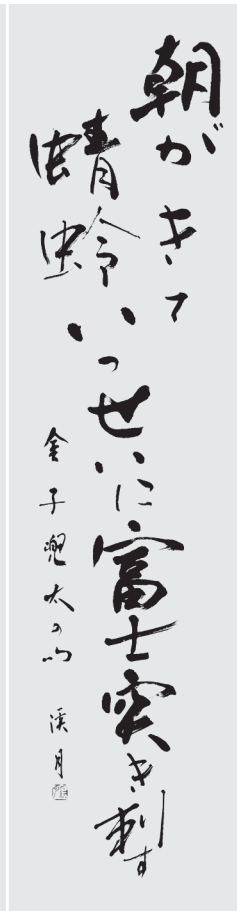 朝がきて
蜻蛉いっせいに富士突き刺す
金子兜太の句 渓月